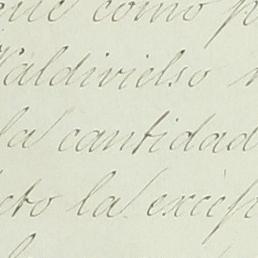 que como p
Valdivielso
la cantidad
cto la excep